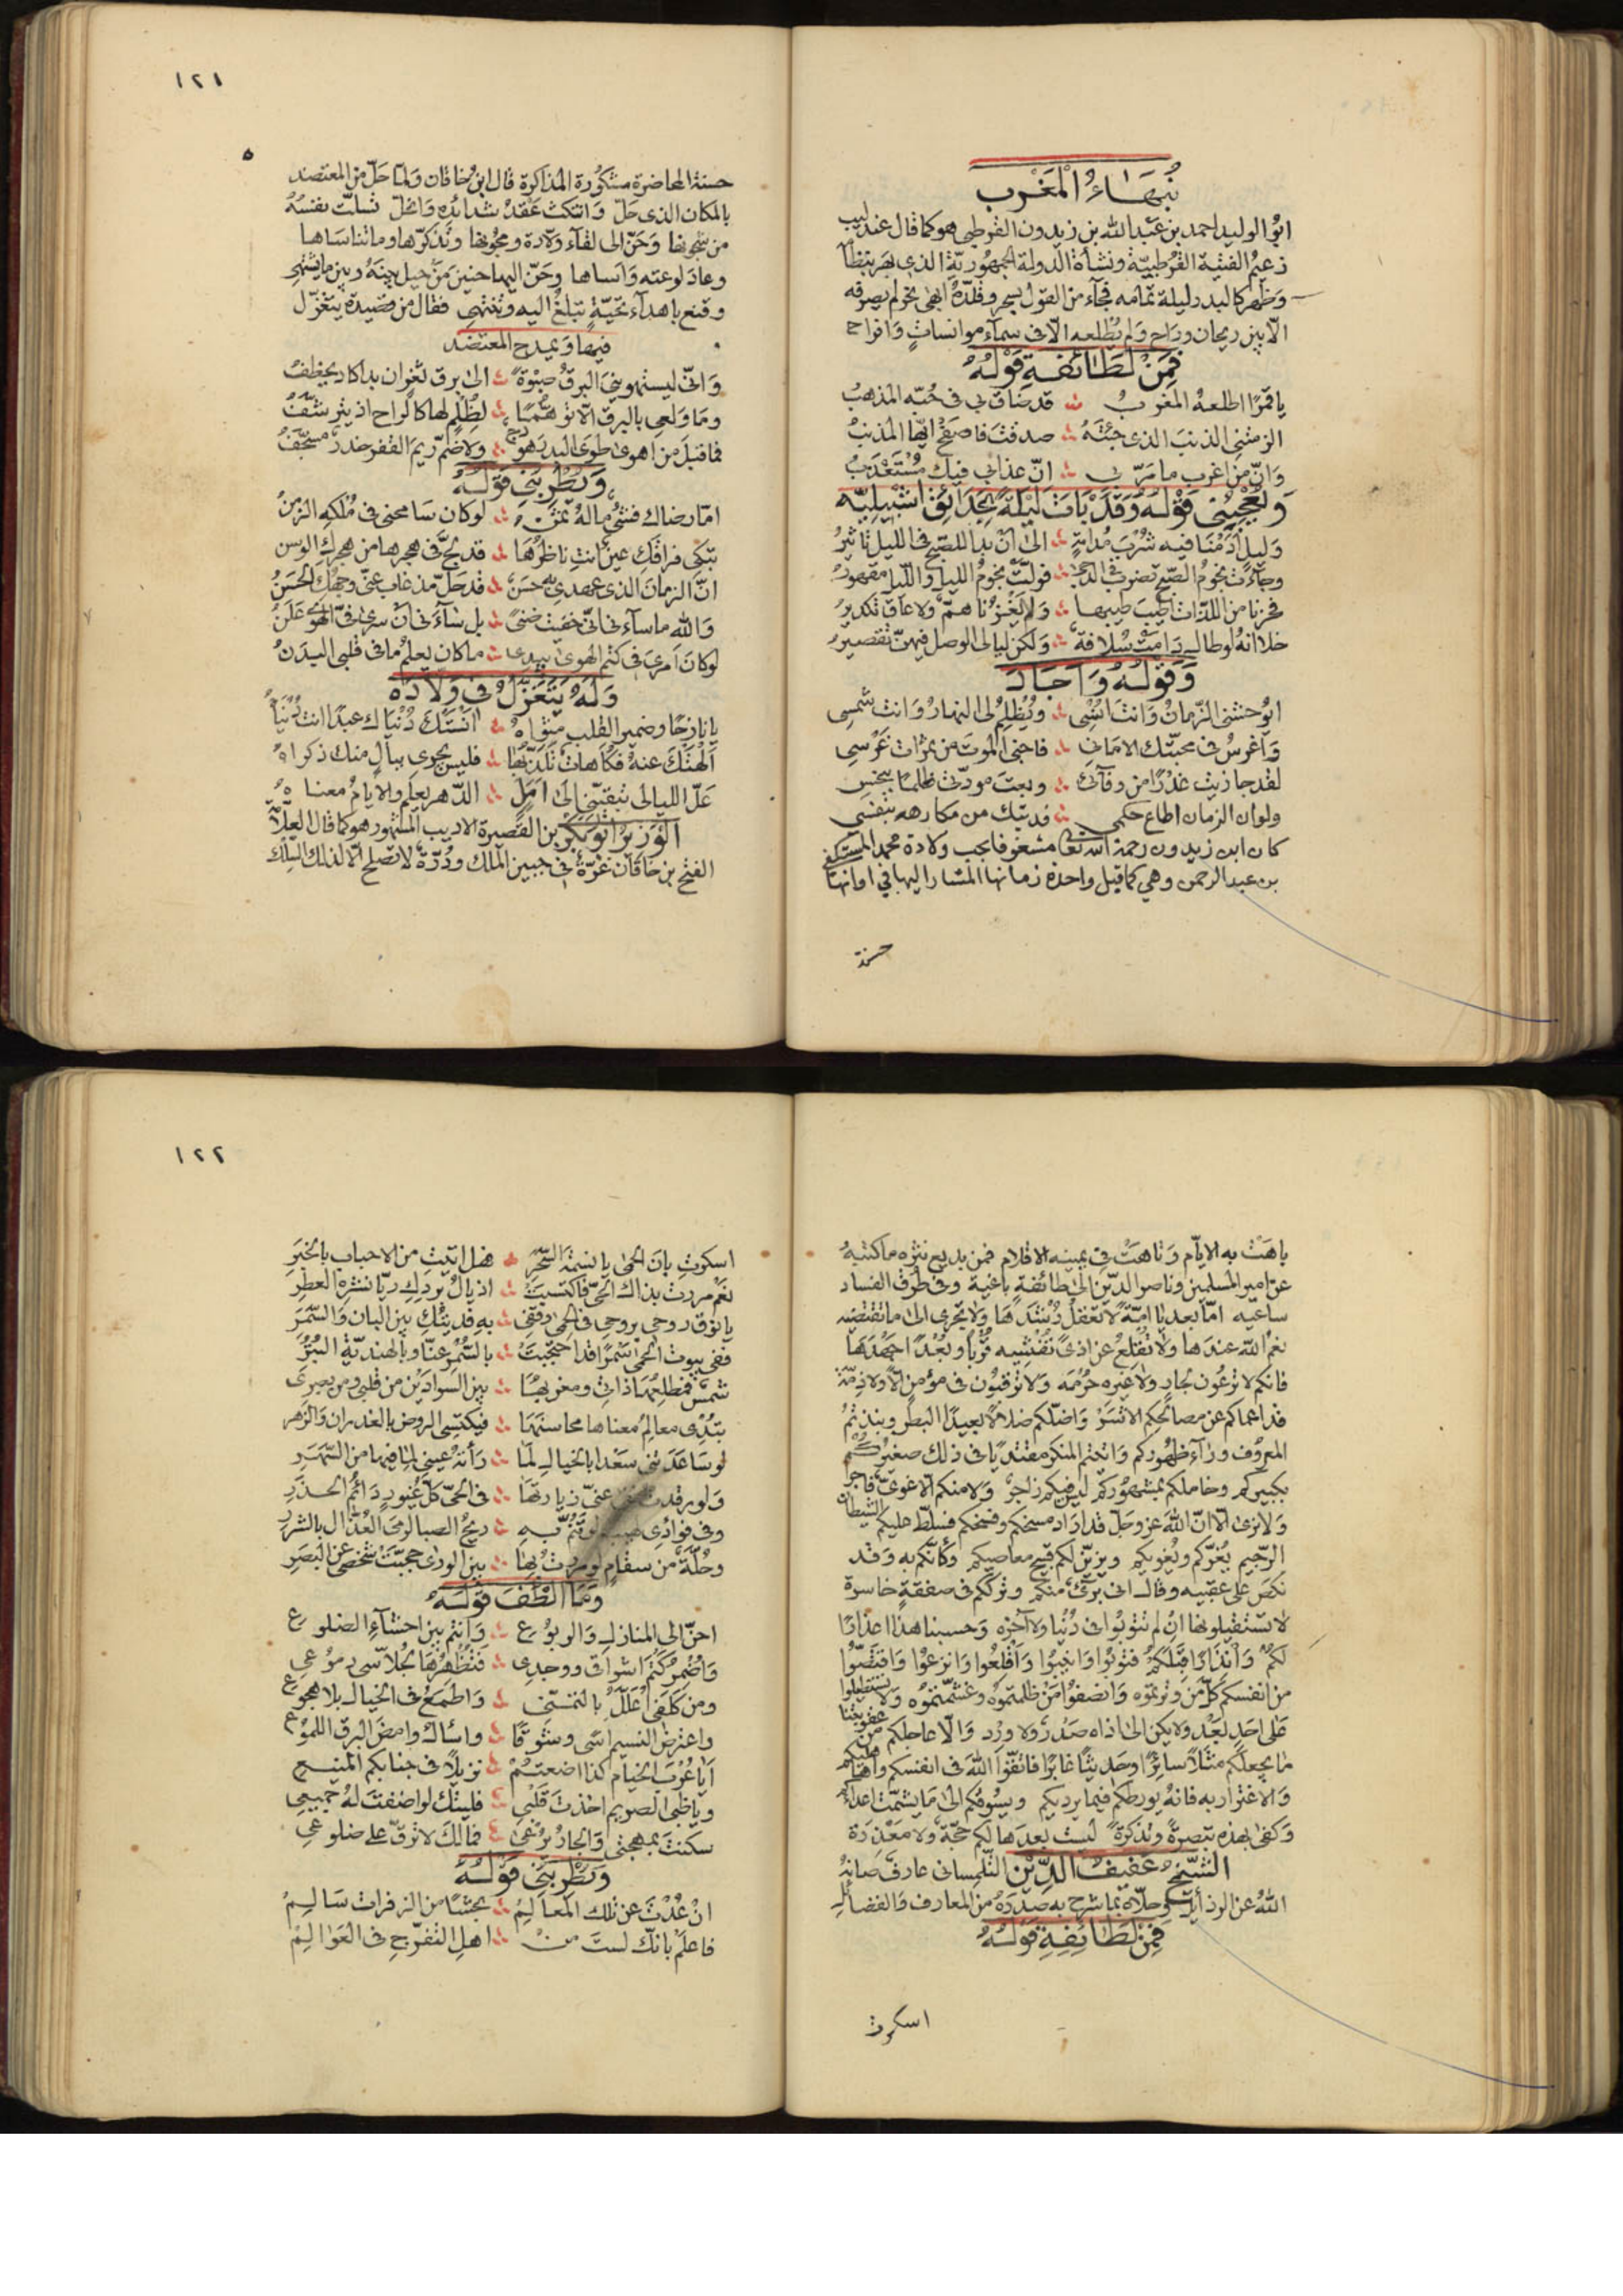 نبهاء المغرب
ابو الوليد احمد بن عبد الله بن زيدون القرطبي هو كما قال عندليب
زعيم الفئية القرطبية ونشأة الدولة الجمهورية الذي بهر بنظا
وظهر كالبدر ليلة تمامه فجاء من القول بسحر وقلده ابهى نحر لم يصرفه
الا بين ريحان وراح ولم يطلعه الا في سماء موانسات وافراح
فمن لطائفه قوله
يا قمرا اطلعه المغرب ؞ قد ضاق بي في حبه المذهب
الزمتني الذنب الذي جئته ؞ صدقت فاصفح ايها المذنب
وان من اغرب ما مر بي ؞ ان عذابي فيك مستعذب
ويعجبني قوله وقد بات ليلة بحدائق اشبيليه
وليل ادمنا فيه شرب مدامة ؞ الى ان بدا للصبح في الليل تاثير
وجاءت نجوم الصبح تضرب في الدجى ؞ فولت نجوم الليل والليل مقهور
فحزنا من اللذات اطيب طيبها ؞ ولم يعزنا هم ولا عاق تكدير
خلا انه لو طال دامت سلافة ؞ ولكن ليالي الوصل فيهن تقصير
وقوله واجاد
ايوحشني الزمان وانت انسي ؞ ويظلم لي النهار وانت شمسي
واغرس في محبتك الاماني ؞ فاجني الموت من ثمرات غرسي
لقد جازيت غدرا من وفائي ؞ وبعت مودتي ظلما ببخس
ولو ان الزمان اطاع حكمي ؞ فديتك من مكارهه بنفسي
كان ابن زيدون رحمه الله تعا مشغوفا بحب ولادة محمد المستكفي
بن عبد الرحمن وهي كما قيل واحدة زمانها المشار اليها في اوانها
حسنة
١٢١
٥
حسنة المحاضرة مشكورة المذاكرة قال ابن خاقان ولما حل من المعتضد
بالمكان الذي حل وانتكث عقد شدائده وانحل تسلت نفسه
من شجونها وحن الى لقاء ولادة ومجونها وتذكرها وما تناساها
وعاد لوعته واساها وحن اليها حنين من حيل بينه وبين ما يشتهي
وقنع باهداء تحية تبلغ اليه وتنتهي فقال من قصيدة يتغزل
فيها ويمدح المعتضد
واني ليستهويني البرق صبوة ؞ الى برق ثغر ان بدا كاد يخطف
وما ولعي بالبرق الا توهما ؞ لظلم لها كالراح اذ يترشف
فما قبل من اهوى طوى البدر هودج ؞ ولا ضم ريم القفر خدر مسجف
ويطربني قوله
اما رضاك فشيء ماله ثمن ؞ لو كان سامحني في ملكه الزمن
تبكي فراقك عين انت ناظرها ؞ قد لج في هجرها من هجرك الوسن
ان الزمان الذي عهدي به حسن ؞ قد حل مذ غاب عني وجهك الحسن
والله ما ساءني اني خفيت ضنى ؞ بل ساءني ان سري في الهوى علن
لو كان امري في كتم الهوى بيدي ؞ ما كان يعلم ما في قلبي البدن
وله يتغزل في ولاده
يا نازحا وضمير القلب مثواه ؞ انستك دنياك عبدا انت دنياه
الهتك عنه فكاهات تلذ بها ؞ فليس يجري ببال منك ذكراه
عل الليالي تبقيني الى امل ؞ الدهر يعلم والايام معناه
الوزير ابو بكر بن القصيرة الاديب المشهور هو كما قال العلامة
الفتح بن خاقان غرة في جبين الملك ودرة لا تصلح الا لذلك السلك
باهت به الايام وتاهت في يمينه الاقلام فمن بديع نثره ما كتبه
عن امير المسلمين وناصر الدين الى طائفة باغية وفي طرف الفساد
ساعيه اما بعد يا امة لا تعقل رشدها ولا تجري الى ما تقتضيه
نعم الله عندها ولا تقلع عن اذى تفشيه قربا وبعدا جهدها
فانكم لا ترعون لجار ولا غيره حرمه ولا ترقبون في مؤمن الا ولا ذمة
قد اعماكم عن مصالحكم الاشر واضلكم ضلالا بعيدا البطر ونبذتم
المعروف وراء ظهوركم واتيتم المنكر مقتديا في ذلك صغيركم
بكبيركم وخاملكم بمشهوركم ليس فيكم زاجر ولا منكم الا غوي فاجر
ولا نرى الا ان الله عز وجل قد اراد مسخكم وفسخكم فسلط عليكم الشيطان
الرجيم يغركم ويغويكم ويزين لكم قبيح معاصيكم وكانكم به وقد
نكص على عقبيه وقال اني بريء منكم وترككم في صفقة خاسرة
لا تستقيلونها ان لم تتوبوا في دنيا ولا آخره وحسبنا هذا اعذارا
لكم وانذارا قبلكم فتوبوا وانيبوا واقلعوا وانزعوا واقتصوا
من انفسكم كل من وترتموه وانصفوا من ظلمتموه وغشمتموه ولا تستطيلوا
على احد بعد ولا يكن الى اذاه صدر ولا ورد والا عاجلكم من عقوبتنا
ما يجعلكم مثلا سائرا وحديثا غابرا فاتقوا الله في انفسكم واهليكم
والاغترار به فانه يورطكم فيما يرديكم ويسوقكم الى ما يشمت اعداءكم
وكفى بهذه تبصرة وتذكرة ليست بعدها لكم حجة ولا معذرة
الشيخ عفيف الدين التلمساني عارف صانه
الله عن الرذايل وحلاه بما شرح به صدره من المعارف والفضايل
فمن لطائفه قوله
اسكرت
١٢٢
اسكرت بان الحمى يا نسمة السحر ؞ هل اتيت من الاحباب بالخبر
نعم مررت بذاك الحي فاكتسبت ؞ اذيال بردك ريا نشره العطر
يا نوق روحي بروحي في الحمى وقفي ؞ به فديتك بين البان والسمر
ففي بيوت الحمى سمرا قد احتجبت ؞ بالسمر عنا وبالهندية البتر
شمس فمطلعها ذاتي ومغربها ؞ بين السوادين من قلبي ومن بصري
تبدي معالم معناها محاسنها ؞ فيكتسي الروض بالغدران والزهر
لو ساعدتني سعدا بالخيال لما ؞ رأته عيني لما فيها من السهر
ولو رقدت عني زيارتها ؞ في الحي كل غيور دائم الحذر
وفي فؤادي لو تم به ؞ ريح الصبا لرمى العذال بالشرر
وحلة من سقام لو مررت بها ؞ بين الورى حجبت شخصي عن البصر
وما الطف قوله
احن الى المنازل والربوع ؞ وانتم بين احشاء الضلوع
واضمر كتم اشواقي ووجدي ؞ فتظهرها لجلاسي دموعي
ومن كلفي اعلل بالتمني ؞ واطمع في الخيال بلا هجوع
واعترض النسيم اسى وشوقا ؞ واسأل وامض البرق اللموع
ايا عرب الخيام كذا اضعتم ؞ نزيلا في جنابكم المنيع
ويا ظبي الصريم اخذت قلبي ؞ فليتك لو اضفت له جميعي
سكنت بمهجتي والجار يرعى ؞ فما لك لا ترق على ضلوعي
ويطربني قوله
ان عدت عن تلك المعالم ؞ بحشا من الزفرات سالم
فاعلم بانك لست من ؞ اهل التفرج في العوالم